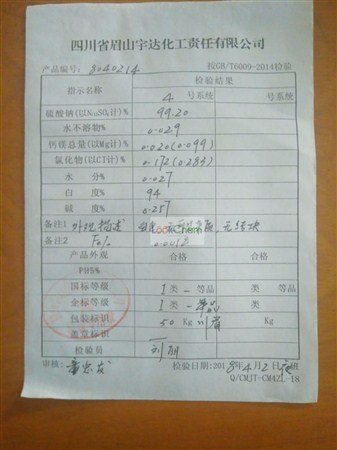 四川省眉山宇达化工责任有限公司
产品编号: 8040214 按GB/T6009-2014检验
指示名称 检验结果
4 号系统 号系统
硫酸钠(以Na₂SO₄计)% 99.20
水不溶物% 0.029
钙镁总量(以Mg计)% 0.020(0.099)
氯化物(以Cl计)% 0.172(0.283)
水 分% 0.027
白 度% 94
碱 度% 0.257
备注1 外观描述 白色 无结块
LookChem
备注2 Fe% 0.0012
产品外观 合格 合格
PB5%
国标等级 I 类 一 等品 类 等品
企标等级 I 类 一 等品
包装标识 50 Kg Kg
盖章标识
检验员
审核: 检验日期:2018年4月2日 班
Q/CMJT-CM4ZL-18